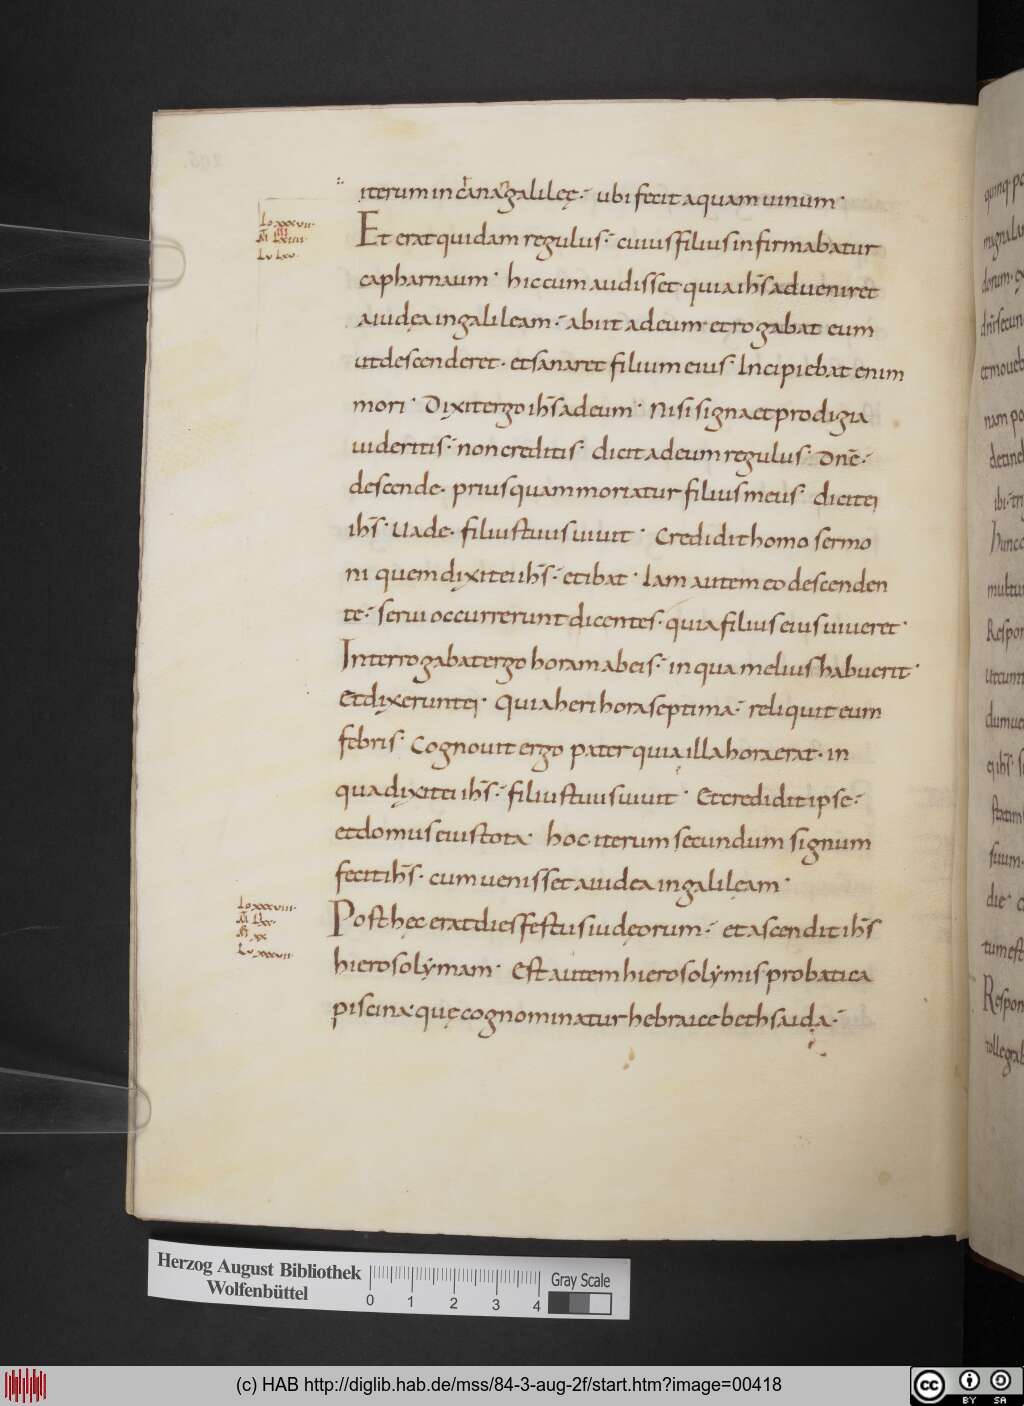 iterum in cana galileę· ubi fecit aquam uinum·
Lo xxxvii·
Et erat quidam regulus· cuius filius infirmabatur
Lu Lxv·
capharnaum· hic cum audisset quia ihs̄ adueniret
a iudęa in galileam· abiit ad eum et rogabat eum
ut descenderet· et sanaret filium eius· Incipiebat enim
mori· Dixit ergo ihs̄ ad eum· Nisi signa et prodigia
uideritis· non creditis· dicit ad eum regulus· Dnē·
descende· prius quam moriatur filius meus· dicit ei
ihs̄· Uade· filius tuus uiuit· Credidit homo sermo
ni quem dixit ei ihs̄· et ibat· Iam autem eo descenden
te· serui occurrerunt dicentes· quia filius eius uiueret·
Interrogabat ergo horam ab eis· in qua melius habuerit·
Et dixerunt ei· Quia heri hora septima· reliquit eum
febris· Cognouit ergo pater quia illa hora erat· in
qua dixit ei ihs̄· filius tuus uiuit· Et credidit ipse·
et domus eius tota· hoc iterum secundum signum
fecit ihs̄· cum uenisset a iudea in galileam·
Lo xxxviii·
Post hęc erat dies festus iudęorum· et ascendit ihs̄
Lu xxxvii·
hierosolymam· Est autem hierosolymis probatica
piscina· quę cognominatur hebraice bethsaida·
Herzog August Bibliothek
Wolfenbüttel
0 1 2 3 4
Gray Scale
(c) HAB http://diglib.hab.de/mss/84-3-aug-2f/start.htm?image=00418
cc BY SA